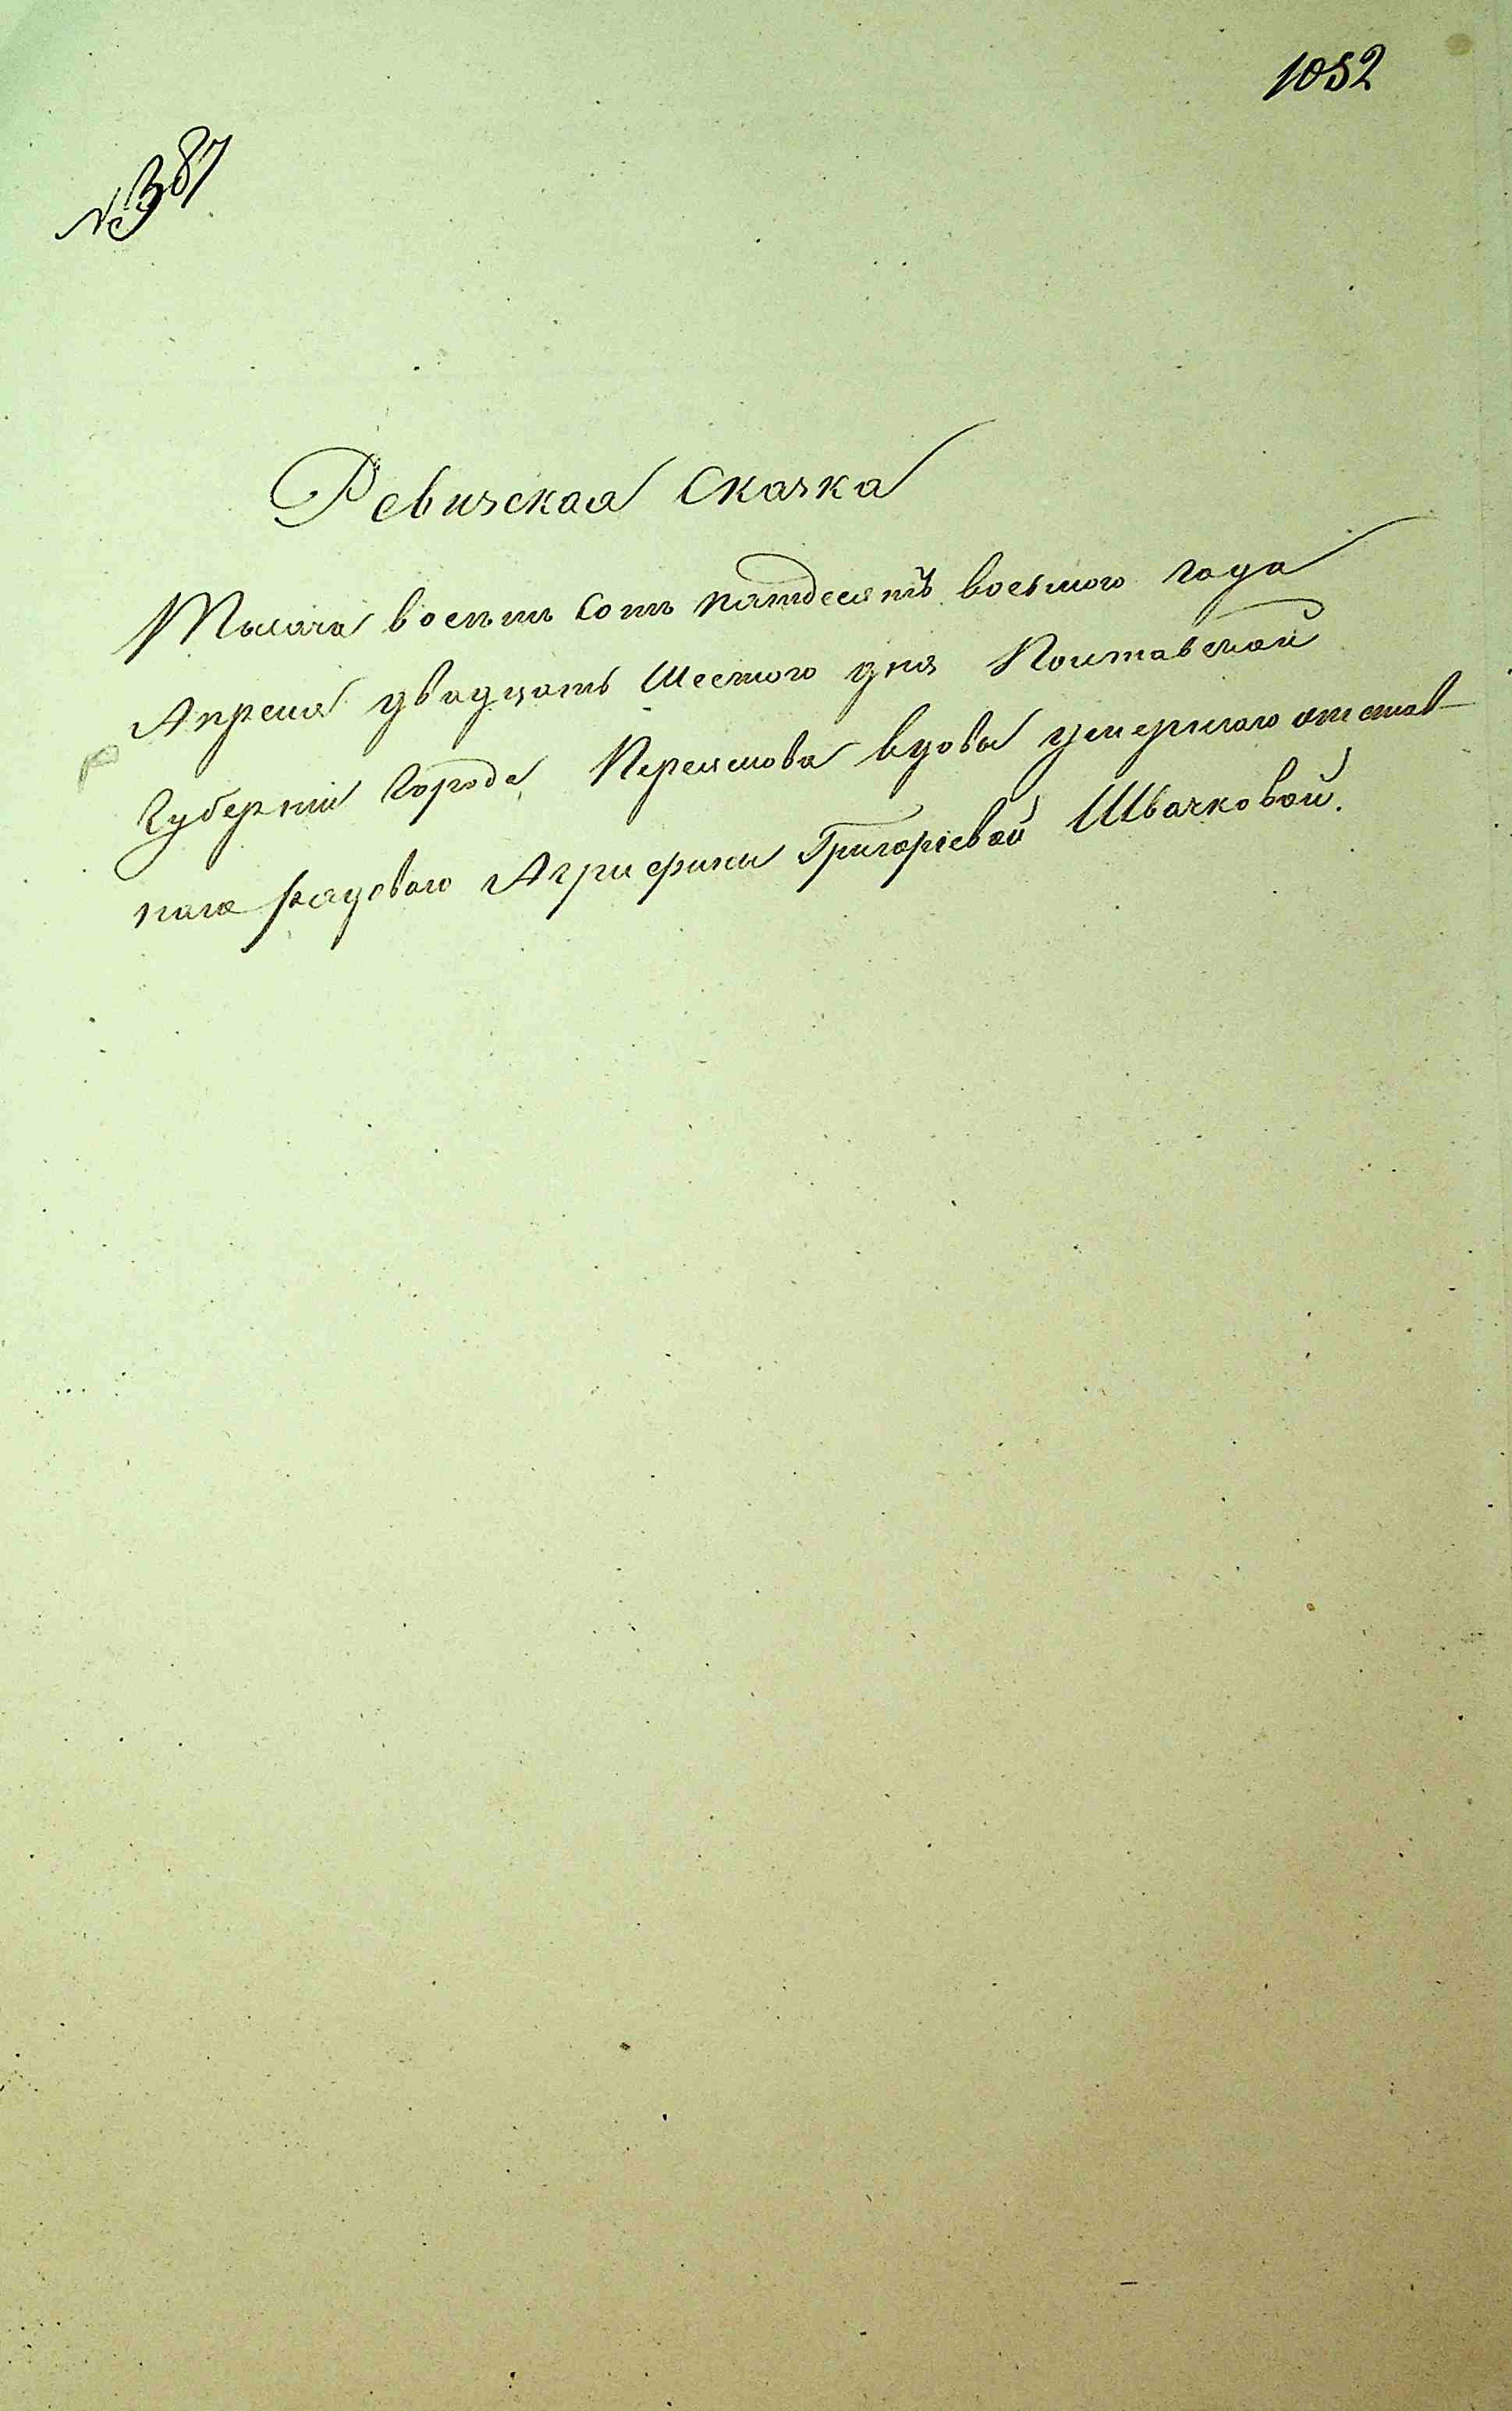 1052
№387
Ревизская Сказка
Тысяча восемь сотъ пятдесятъ восьмого года
Апреля двадцать Шестого дня Полтавской
Губернии Города Переяслова вдовы умершаго отстав-
ного рядового Агрифины Григорiевой Швачковой.